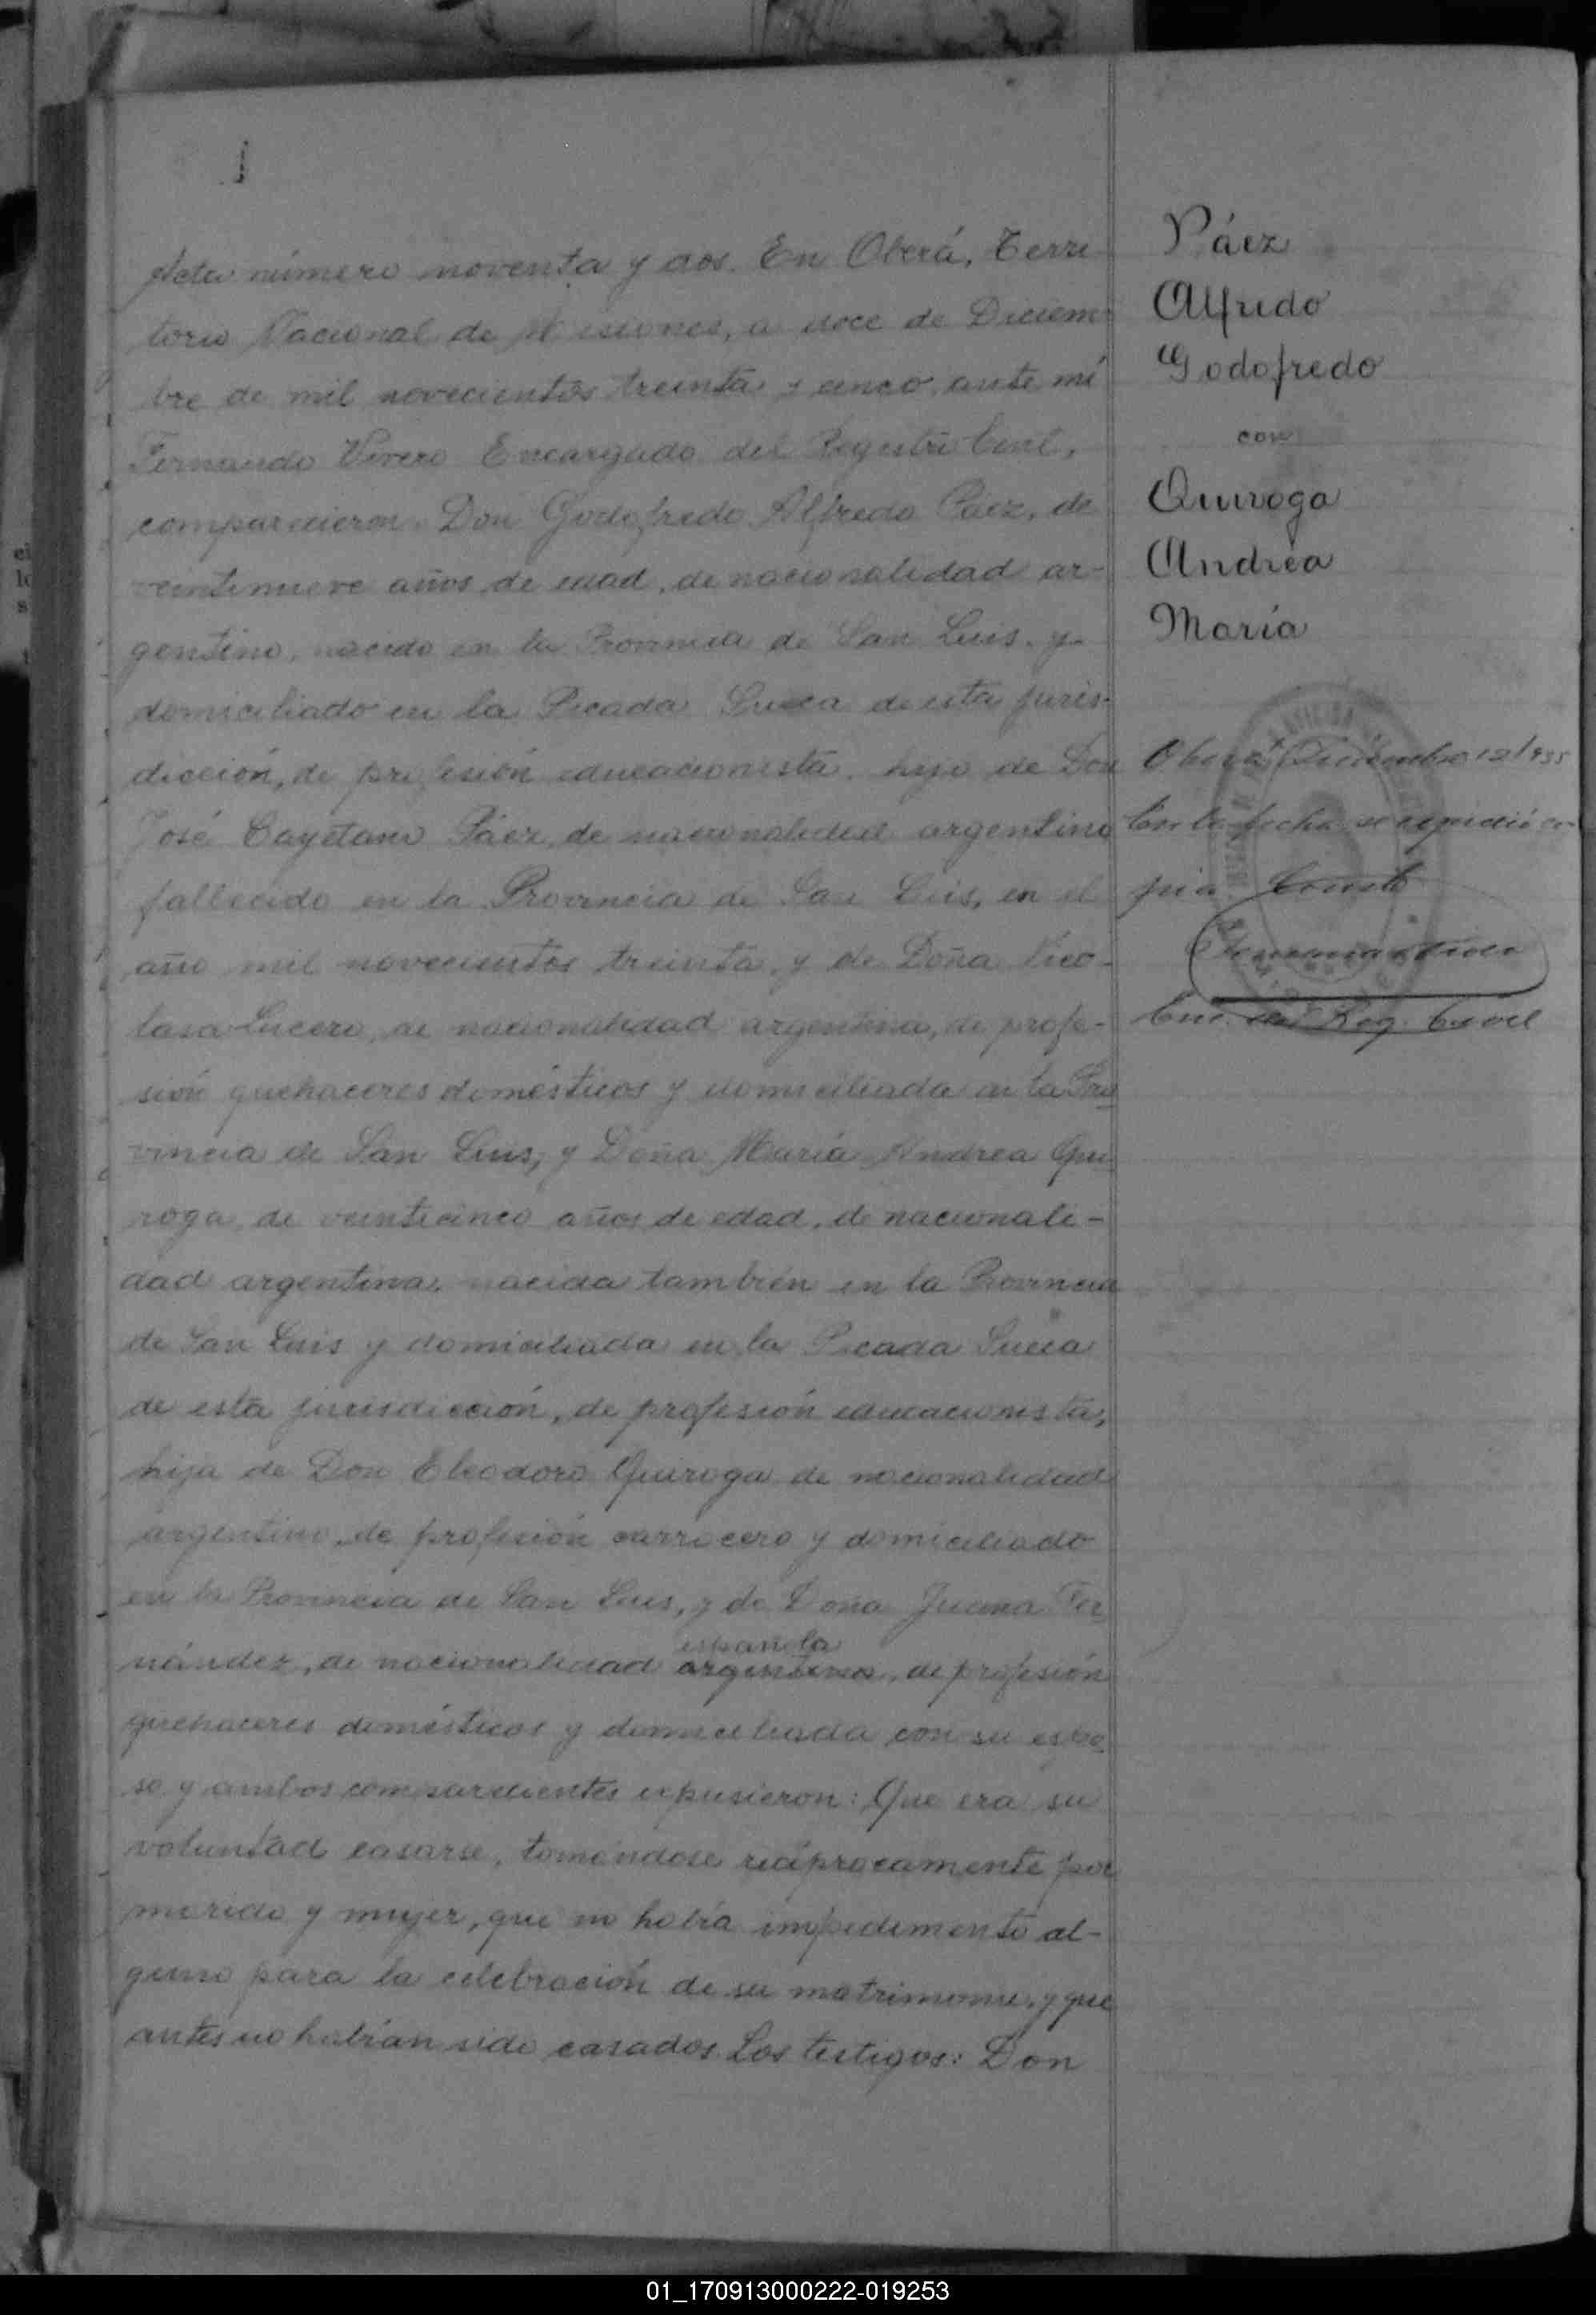 Acta número noventa y dos. En Oberá, Terri-
torio Nacional de Misiones, a doce de Diciem-
bre de mil novecientos treinta y cinco, ante mí
Fernando Vivero Encargado del Registro Civil,
comparecieron: Don Godofredo Alfredo Páez, de
veintinueve años de edad, de nacionalidad ar-
gentino, nacido en la Provincia de San Luis y
domiciliado en la Picada Sueca de esta juris-
dicción, de profesión educacionista, hijo de Don
José Cayetano Páez, de nacionalidad argentino
fallecido en la Provincia de San Luis, en el
año mil novecientos treinta y de Doña Nico-
lasa Lucero, de nacionalidad argentina, de profe-
sión quehaceres domésticos y domiciliada en la Pro
vincia de San Luis; y Doña María Andrea Qui
roga, de veinticinco años de edad, de nacionali-
dad argentina, nacida también en la Provincia
de San Luis y domiciliada en la Picada Sueca
de esta jurisdicción, de profesión educacionista,
hija de Don Eleodoro Quiroga de nacionalidad
argentino, de profesión carrocero y domiciliado
en la Provincia de San Luis, y de Doña Juana Fer
española
nández, de nacionalidad argentina, de profesión
quehaceres domésticos y domiciliada con su espo
so y ambos comparecientes expusieron: Que era su
voluntad casarse, tomándose recíprocamente por
marido y mujer, que no había impedimento al-
guno para la celebración de su matrimonio, y que
antes no habían sido casados. Los testigos: Don
Páez
Alfredo
Godofredo
con
Quiroga
Andrea
María
Oberá Diciembre 12/935
En la fecha se expidió co-
pia. Consto
Enc. del Reg. Civil
01_170913000222-019253